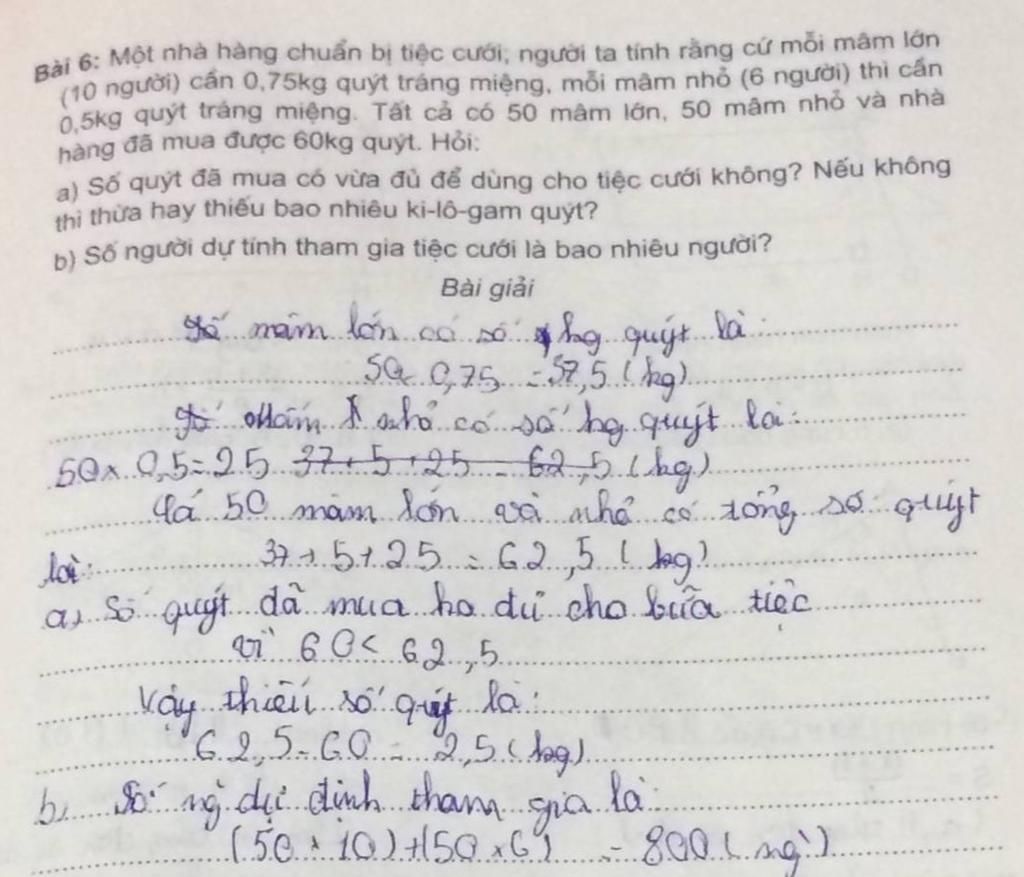 Bài 6: Một nhà hàng chuẩn bị tiệc cưới, người ta tính rằng cứ mỗi mâm lớn
(10 người) cần 0,75kg quýt tráng miệng, mỗi mâm nhỏ (6 người) thì cần
0,5kg quýt tráng miệng. Tất cả có 50 mâm lớn, 50 mâm nhỏ và nhà
hàng đã mua được 60kg quýt. Hỏi:
a) Số quýt đã mua có vừa đủ để dùng cho tiệc cưới không? Nếu không
thì thừa hay thiếu bao nhiêu ki-lô-gam quýt?
b) Số người dự tính tham gia tiệc cưới là bao nhiêu người?
Bài giải
mâm lớn có số kg quýt là:
50 x 0,75 = 37,5 (kg)
mâm nhỏ có số kg quýt là:
50 x 0,5 = 25 37 + 5 + 25 = 62,5 (kg)
50 mâm lớn và nhỏ có tổng số quýt
là: 37 + 5 + 25 = 62,5 (kg)
a, Số quýt đã mua ko đủ cho bữa tiệc
vì 60 < 62,5
Vậy thiếu số quýt là:
62,5 - 60 = 2,5 (kg)
b, Số ng dự định tham gia là:
(50 x 10) + (50 x 6) = 800 (ng)